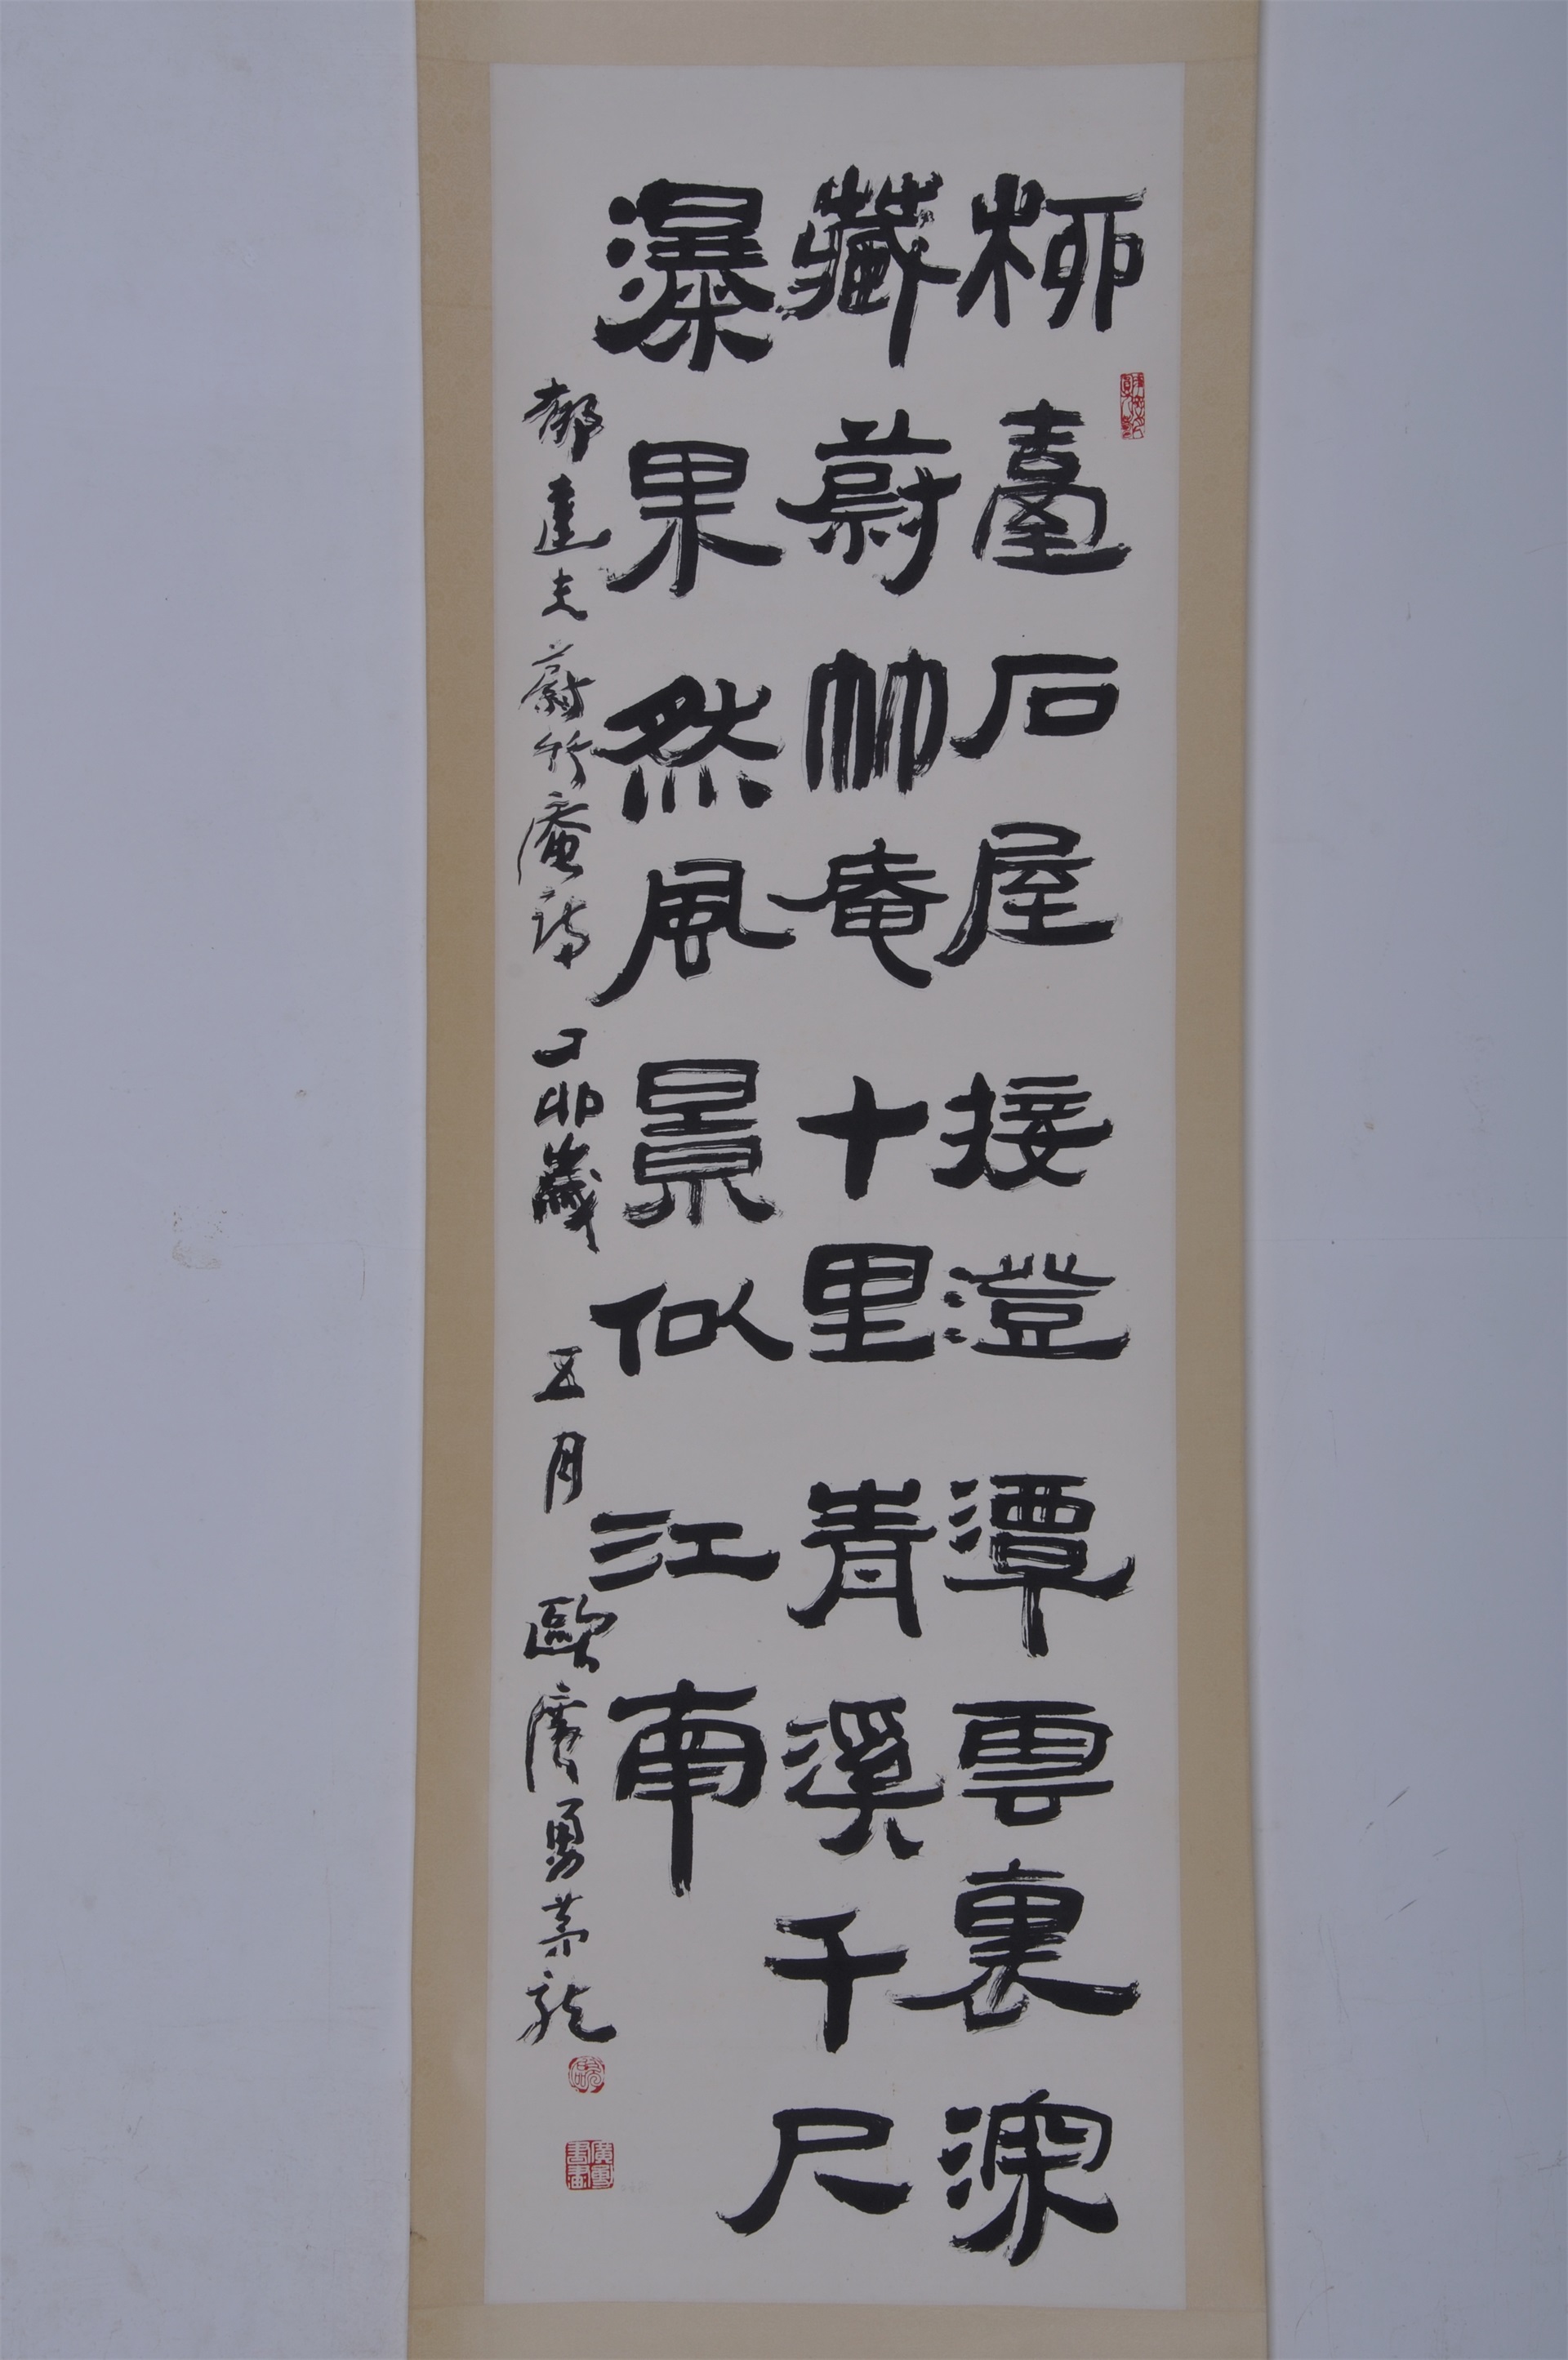 柳臺石屋接澄潭雲裏深
藏蔚竹庵十里青溪千尺
瀑果然風景似江南
郁達夫蔚竹庵詩 丁卯歲 五月 歐廣勇茅龍
廣勇書畫